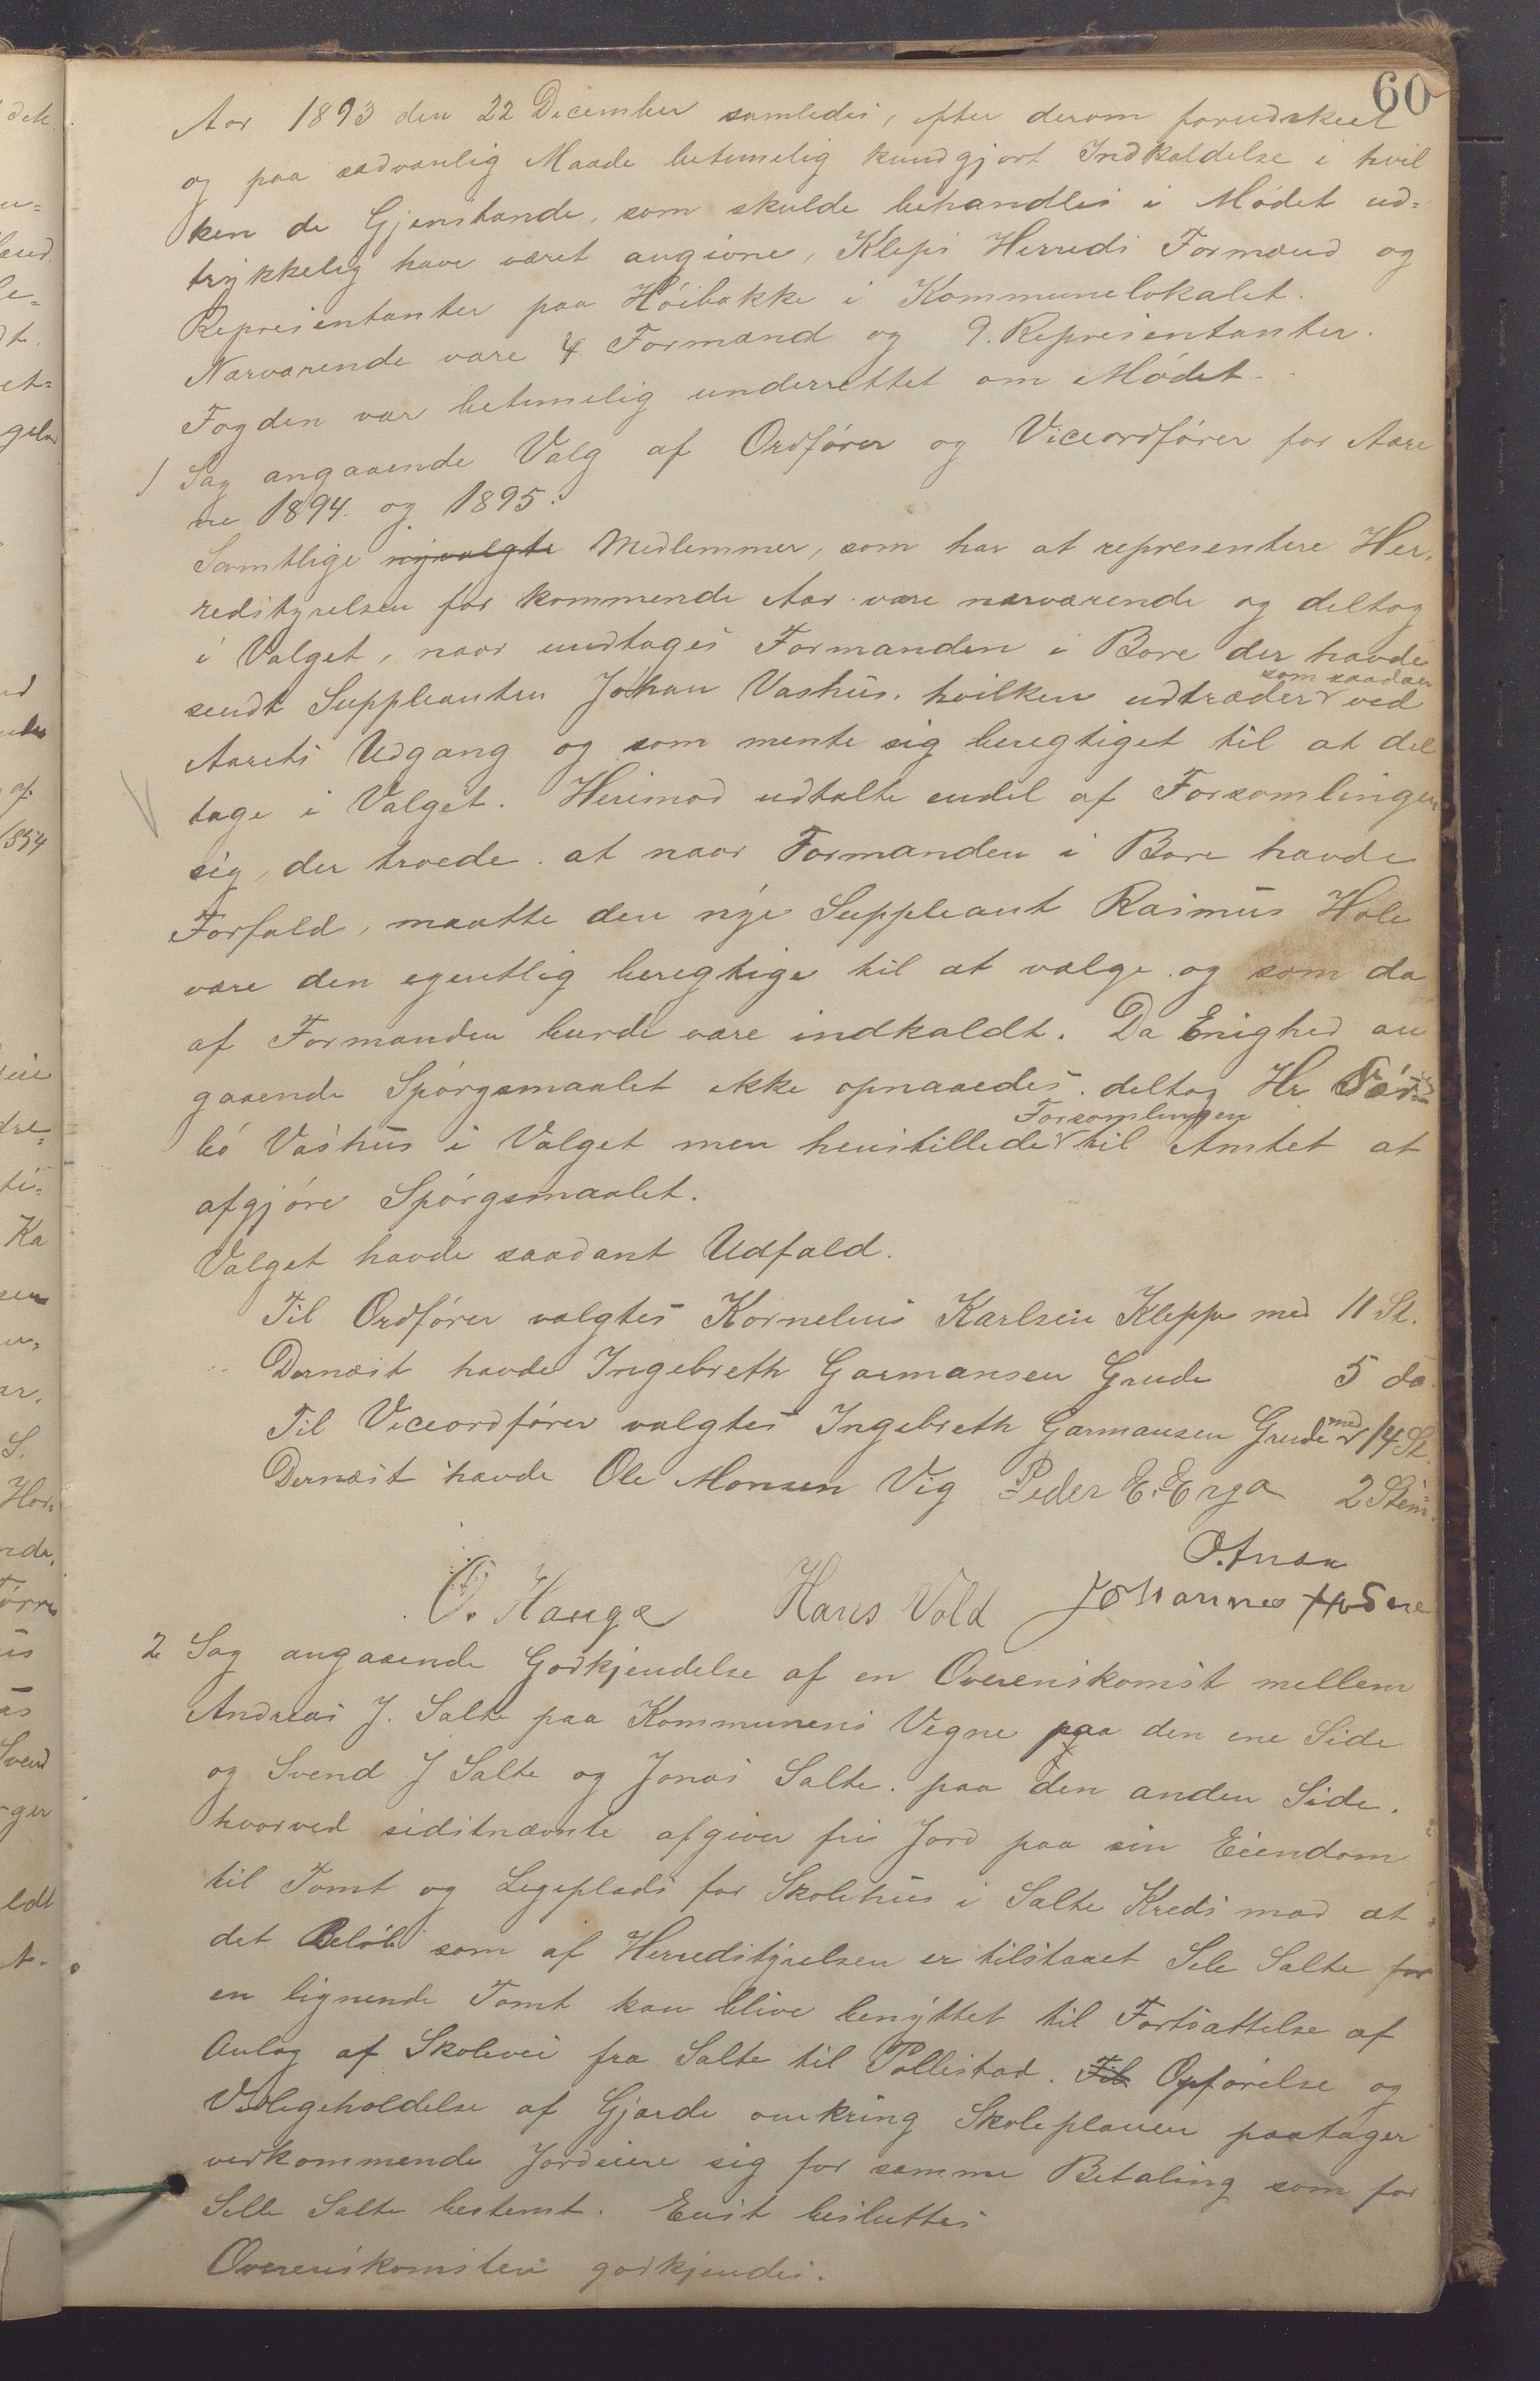 60
Aar 1893 den 22 December samledes, efter derom forudskeet
og paa sædvanlig Maade betimelig kundgjort Indkaldelse i hvil
ken de Gjenstande, som skulde behandles i Mødet ud=
trykkelig have været angivne, Kleps Herreds Formænd og
Representanter paa Höibakke i Kommunelokalet.
Nærværende vare 4 Formænd og 9. Representanter.
Fogden var betimelig underrettet om Mødet.
1 Sag angaaende Valg af Ordfører og Viceordfører for Aare
ne 1894. og 1895.
Samtlige nyvalgte Medlemmer, som har at representere Her,
redstyrelsen for kommende Aar vare nærværende og deltog
i Valget, naar undtages Formanden i Bore der havde
som saadan
sendt Suppleanten Johan Vashus. hvilken udtræder ved
Aarets Udgang og som mente sig beregtiget til at del
tage i Valget. Herimod udtalte endel af Forsamlingen
sig, der troede. at naar Formanden i Bore havde
Forfald, maatte den nye Suppleant Rasmus Hole
være den egentlig beregtige til at vælge og som da
af Formanden burde være indkaldt. Da Enighed an
gaaende Spørgsmaalet ikke opnaaedes. deltog Hr
Forsamlingen
Vashus i Valget men henstillede til Amtet at
afgjøre Spørgsmaalet.
Valget havde saadant Udfald.
Til Ordfører valgtes Kornelius Karlsen Kleppe med 11 St.
Dernæst havde Ingebreth Garmansen Grude 5 do.
Til Viceordfører valgtes Ingebreth Garmansen Grude med 14 St.
Dernæst havde Ole Monsen Vig Peder E. Erga 2 Stem.
O. Hauge Hans Vold Johannes
2 Sag angaaende Godkjendelse af en Overenskomst mellem
Andreas J. Salte paa Kommunens Vegne paa den ene Side
og Svend J Salte og Jonas Salte. paa den anden Side.
hvorved sidstnævnte afgiver fri Jord paa sin Eiendom
til Tomt og Legeplads for Skolehus i Salte Kreds mod at
det Beløb som af Herredstyrelsen er tilstaaet Sele Salte for
en lignende Tomt kan blive benyttet til Fortsættelse af
Anlæg af Skolevei fra Salte til Pollestad. Til Opførelse og
Vedlegeholdelse af Gjærde omkring Skoleplanen paatager
vedkommende Jordeiere sig for samme Betaling som for
Selle Salte bestemt. Enst besluttes
Overenskomsten godkjendes.